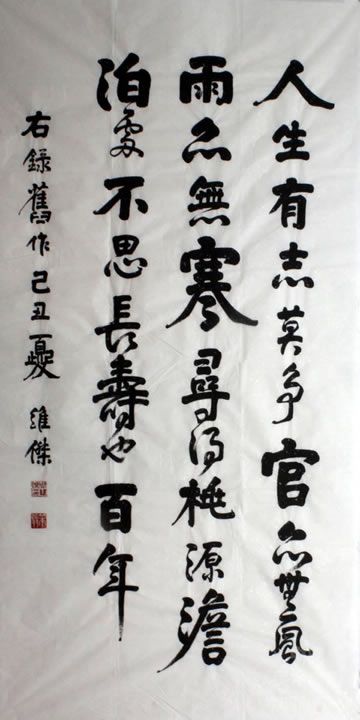 人生有志莫争官亦無風
雨亦無寒尋得桃源澹
泊處不思長壽也百年
右錄舊作己丑夏 維傑